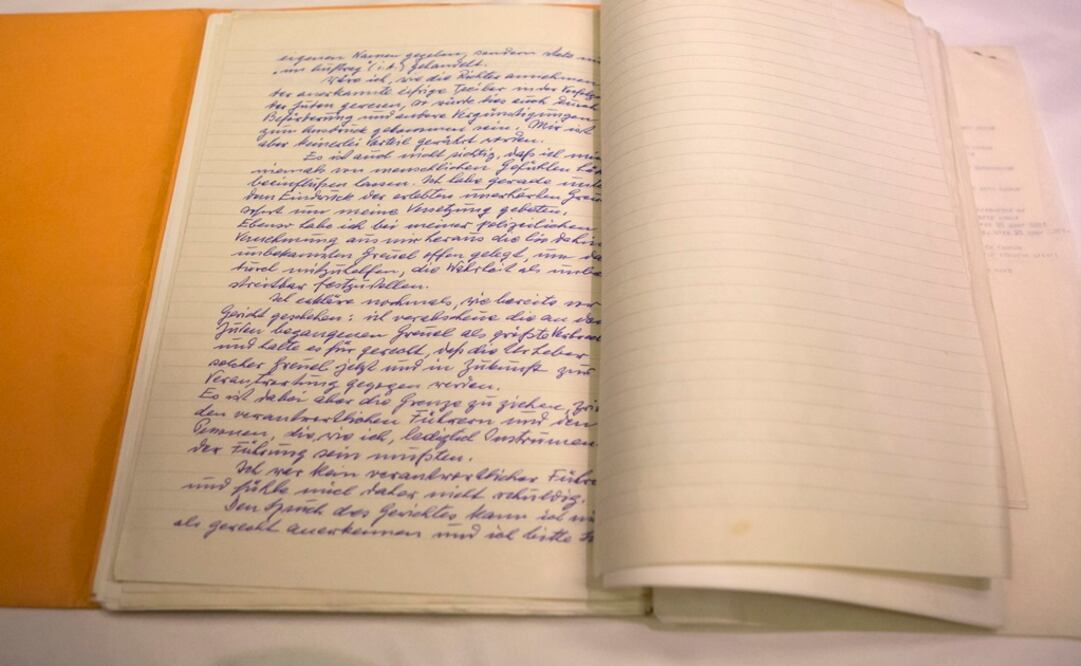 eigenen Namen gegeben, sondern stets
„im Auftrag“ (i.A.) gehandelt.
Wäre ich, wie die Richter annehmen
der anerkannte eifrige Treiber in der Verfolg
der Juden gewesen, so würde dies auch durch
Beförderung und andere Vergünstigungen
zum Ausdruck gekommen sein. Mir ist
aber keinerlei Vorteil gewährt worden.
Es ist auch nicht richtig, daß ich mi
niemals von menschlichen Gefühlen hä
beeinflußen lassen. Ich habe gerade unte
dem Eindruck der erlebten unerhörten Greu
sofort um meine Versetzung gebeten.
Ebenso habe ich bei meiner polizeilichen
Vernehmung aus mir heraus die bis dahin
unbekannten Greuel offen gelegt, um da
durch mitzuhelfen, die Wahrheit als unbe
streitbar festzustellen.
Ich erkläre nochmals, wie bereits vor
Gericht geschehen: ich verabscheue die an den
Juden begangenen Greuel als größte Verbre
und halte es für gerecht, daß die Urheber
solcher Greuel jetzt und in Zukunft zur
Verantwortung gezogen werden.
Es ist dabei aber die Grenze zu ziehen, zwi
den verantwortlichen Führern und den
Personen, die, wie ich, lediglich Instrumen
der Führung sein mußten.
Ich war kein verantwortlicher Führe
und fühle mich daher nicht schuldig.
Den Spruch des Gerichtes kann ich ni
als gerecht anerkennen und ich bitte